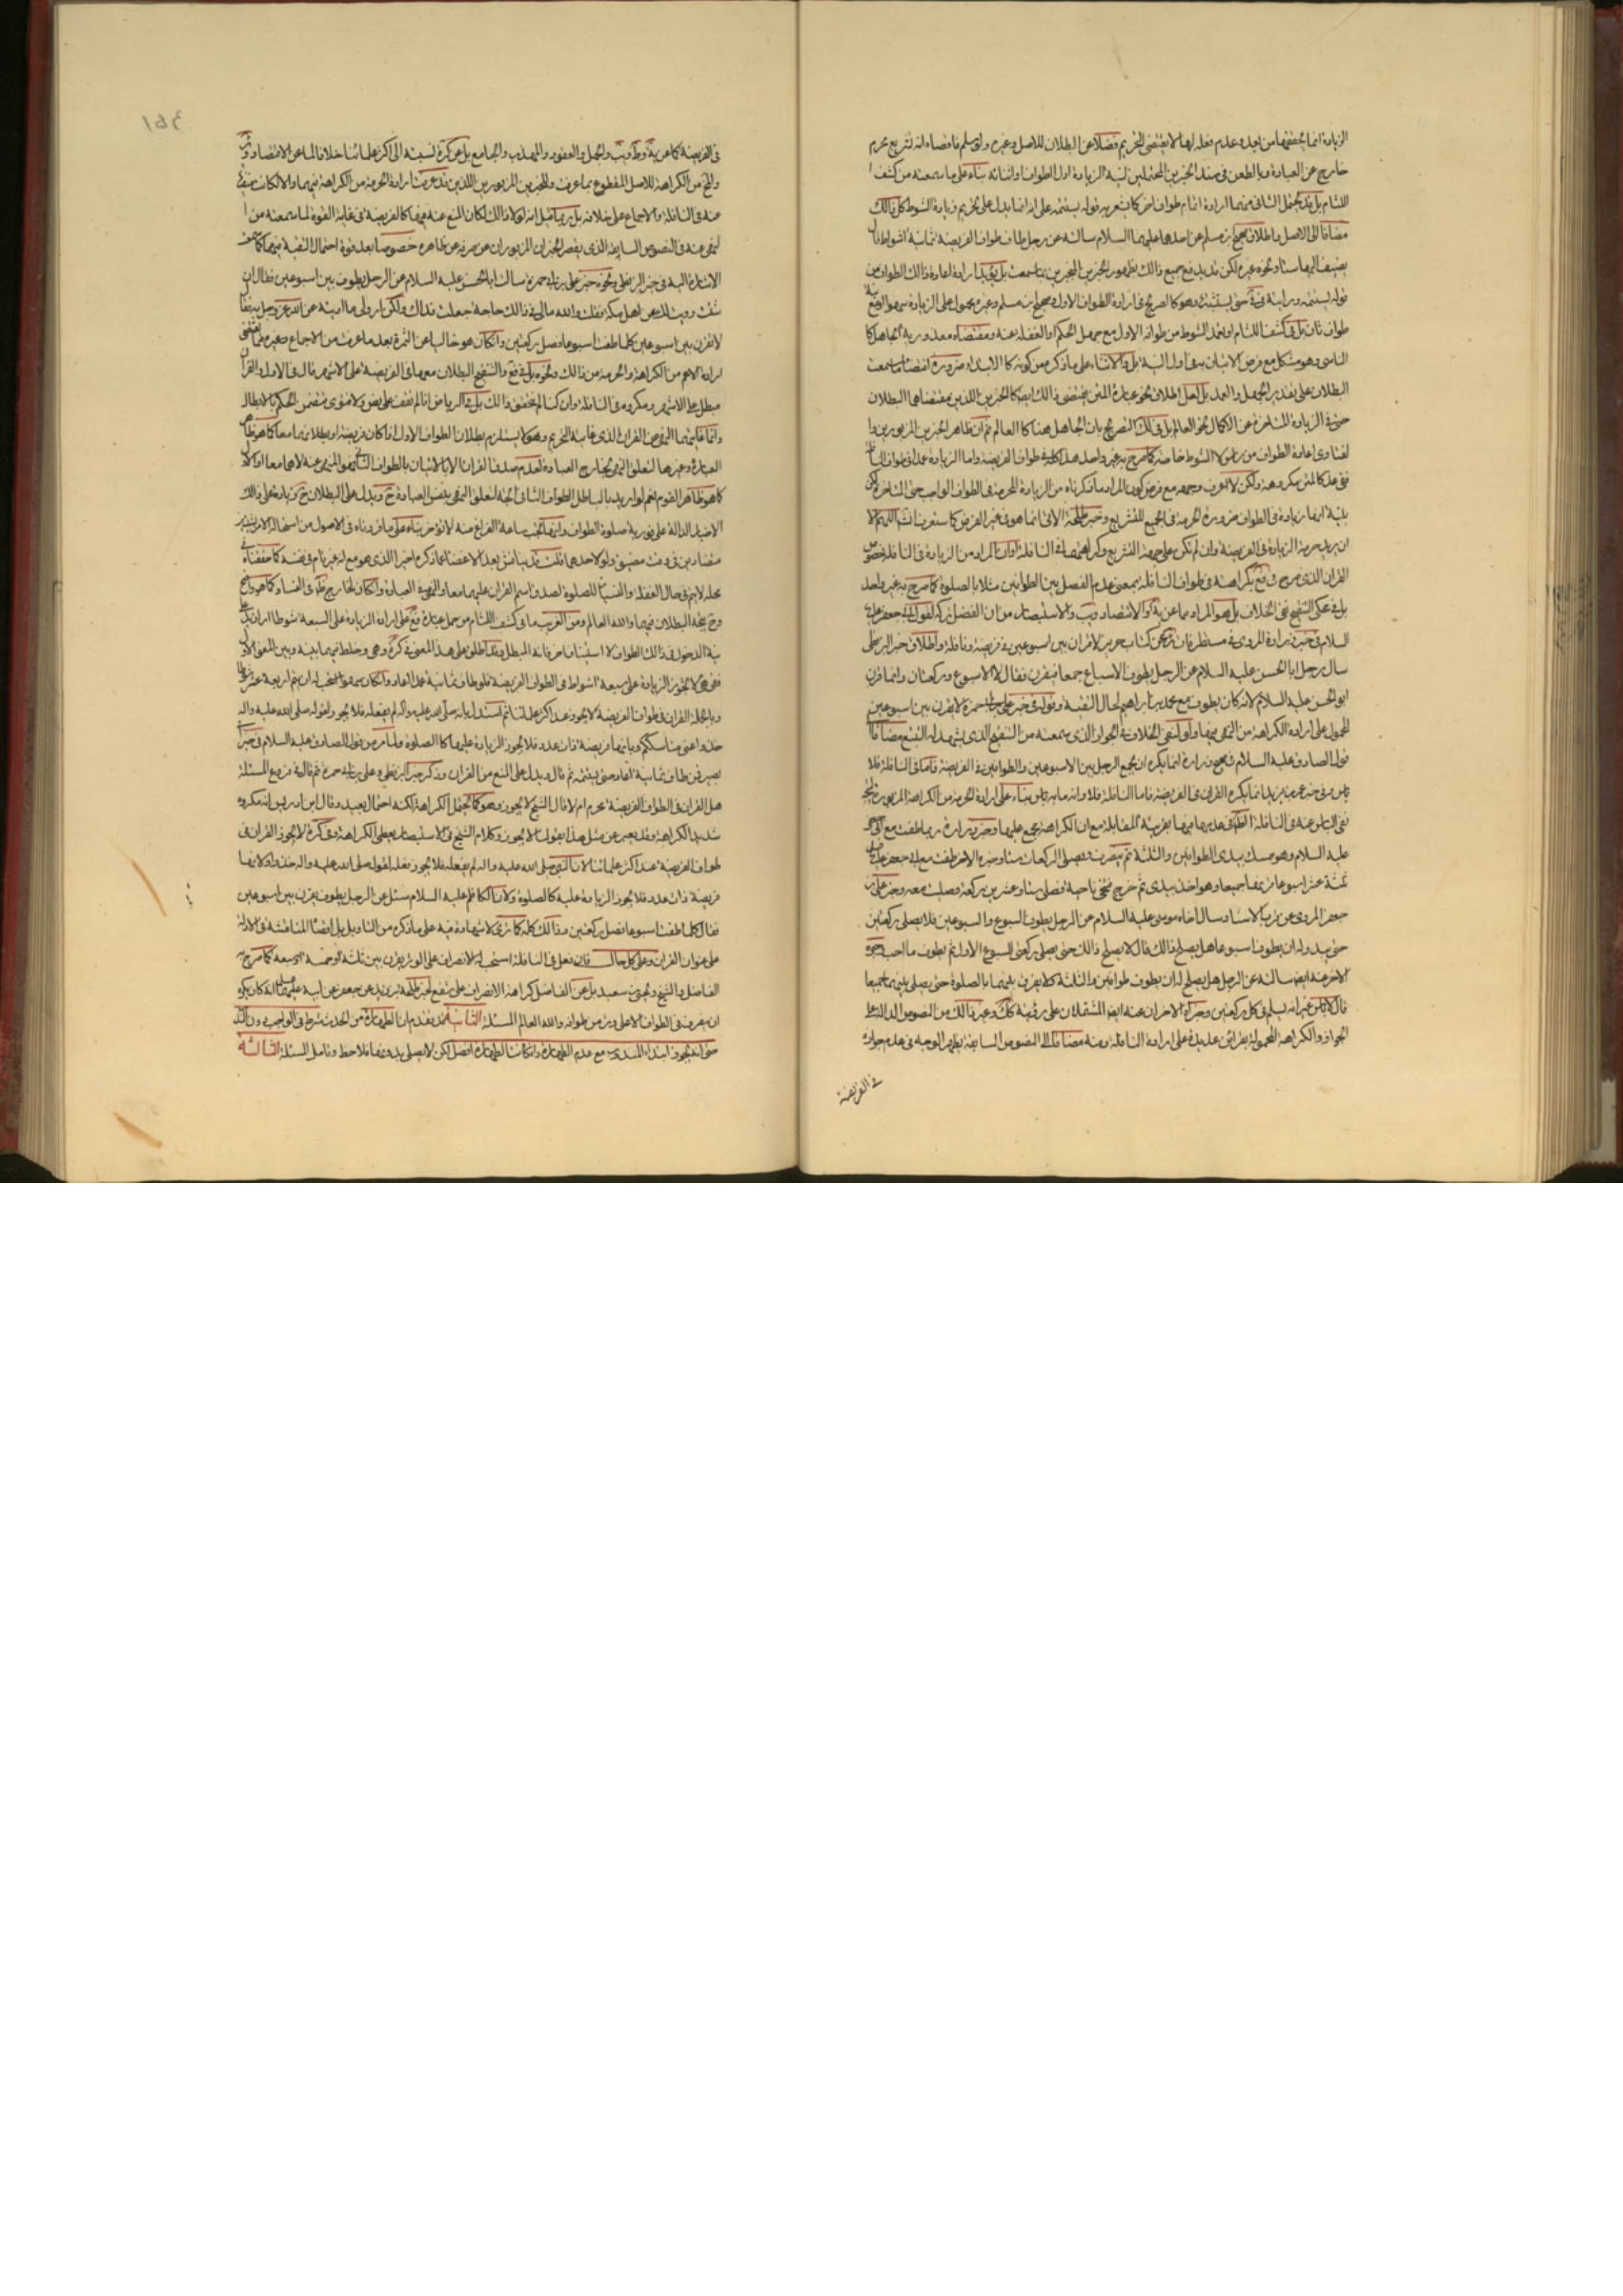 الزيادة انما يحققها من بعد وعدم فعله لها لا يقتضي التحريم فضلا عن البطلان للاصل وغيره ولو سلم فاقصاه انه تشريع محرم
خارج عن العبادة وبالطعن في سند الخبرين المحتملين لنية الزيادة اول الطواف او اثنائه بناء على ما سمعته من كشف
اللثام بل قد يحتمل الثاني منهما ارادة اتمام طواف اخر كما يشعر به قوله يستتمه على انه انما يدل على تحريم زيادة الشوط كل ذلك
مضافا الى الاصل واطلاق صحيح ابن مسلم عن احدهما عليهما السلام سالته عن رجل طاف طواف الفريضة ثمانية اشواط قال
يضيف اليها ستا ونحوه غيره لكن قد يدفع جميع ذلك بظهور الخبرين المنجبرين بما سمعت بل يؤيد ارادة اعادة ذلك الطواف من
قوله يستتمه ورابته في حتى يستتمه وهو كالصريح في ارادة الطواف الاول وصحيح ابن مسلم وغيره محمول على الزيادة سهوا الواقع
طواف ثان بل في كشف اللثام او تعمد الشوط من طوافه الاول مع جهل الحكم او الغفلة عنه ومقتضاه معذورية الجاهل كا
الناسي وهو مشكل مع فرض الاتيان به في اول النية بل والاثناء على ما ذكره من كونه كالابتداء ضرورة اقتضاء ما سمعت
البطلان على تقديري الجهل والعمد بل لعل اطلاق نحو عبارة المتن يقتضي ذلك ايضا كالخبرين اللذين مقتضاهما البطلان
حتى في الزيادة المتاخرة عن الاكمال نحو العالم بل في لك التصريح بان الجاهل هنا كالعالم ثم ان ظاهر الخبرين المزبورين وا
لفتاوى اعادة الطواف من راس لا الشوط خاصة كما صرح به غير واحد هذا كله في طواف الفريضة واما الزيادة عمدا في طواف النا
ففي هذا كالمتن مكروهة ولكن لا اعرف وجهه مع فرض كون المراد ما ذكرناه من الزيادة المحرمة في الطواف الواجب حتى المتاخرة لكن
بنية انها زيادة في الطواف ضرورة الحرمة في الجميع للتشريع وخبر طلحة الاتي انما هو في غير الفرض كما ستعرف اللهم الا
ان يريد حرمة الزيادة في الفريضة وان لم تكن على جهة التشريع وكراهتها في النافلة او ان المراد من الزيادة في النافلة خصوص
القران الذي صرح في فع بكراهته في طواف النافلة بمعنى عدم الفصل بين الطوافين مثلا بالصلوة كما صرح به غير واحد
بل في عكي التنقيح نفي الخلاف بل هو المراد مما عن ية والاقتصاد ويب والاستبصار من ان الفضل تركه لقول ابي جعفر عليه
السلام في خبر زرارة المروي في مستطرفات ئر عن كتاب حريز لا قران بين اسبوعين في فريضة ونافلة واطلاق خبر البزنطي
سال رجل ابا الحسن عليه السلام عن الرجل يطوف الاسباع جميعا فيقرن فقال لا الا الاسبوع وركعتان وانما قرن
ابو الحسن عليه السلام لانه كان يطوف مع محمد بن ابراهيم لحال التقية وقوله في خبر علي بن ابي حمزة لا يقرن بين اسبوعين
المحمول على ارادة الكراهة من النهي فيهما ولو لنفي الخلاف في الجواز الذي سمعته من التنقيح الذي يشهد له التتبع مضافا الى
قول الصادق عليه السلام في صحيح زرارة انما يكره ان يجمع الرجل بين الاسبوعين والطوافين في الفريضة فاما في النافلة فلا
باس وفي خبر عمر بن يزيد انما يكره القران في الفريضة فاما النافلة فلا والله ما به باس بناء على ارادة الحرمة من الكراهة المزبورة فيهما
نفي الباس عنه في النافلة الظاهر في عدمها فيها بقرينة المقابلة مع ان الكراهة مجمع عليها وخبر زرارة ربما طفت مع ابي جعفر
عليه السلام وهو ممسك بيدي الطوافين والثلثة ثم ينصرف ويصلي الركعات ستا وخبره الاخر طفت مع ابي جعفر عليه السلام
ثلثة عشر اسبوعا قرنها جميعا وهو اخذ بيدي ثم خرج فتنحى ناحية فصلى ستا وعشرين ركعة وصليت معه وخبر علي بن
جعفر المروي عن قرب الاسناد سال اخاه موسى عليه السلام عن الرجل يطوف السبوع والسبوعين فلا يصلي ركعتين
حتى يبدو له ان يطوف اسبوعا هل يصلح ذلك قال لا يصلح ذلك حتى يصلي ركعتي السبوع الاول ثم يطوف ما احب وخبره
الاخر عنه ايضا سالته عن الرجل هل يصلح له ان يطوف الطوافين والثلثة ولا يفرق بينهما بالصلوة حتى يصلي بينهما جميعا
قال لا باس غير انه يسلم في كل ركعتين وخبراه الاخران عنه ايضا المشتملان على رؤيته كك وغير ذلك من النصوص الدالة على
الجواز والكراهة المحمولة بقرائن عديدة على ارادة النافلة ومنه مضافا الى النصوص السابقة يظهر الوجه في عدم جوازه
في الفريضة
في الفريضة كما عن ية وط ويب والجمل والعقود والمهذب والجامع بل عن كرة نسبته الى اكثر علمائنا خلافا لما عن الاقتصاد وئر
والمخ من الكراهة للاصل المقطوع بما عرفت والخبرين المزبورين اللذين قد عرفت ارادة الحرمة من الكراهة فيهما والا لكانت منفية
عنه في النافلة والاجماع على خلافه بل ربما قيل انه لولا ذلك لكان المنع عنه فيها كالفريضة في غاية القوة لما سمعته من ا
لنهي عنه في النصوص السابقة الذي يقصر الخبران المزبوران عن صرفه عن ظاهره خصوصا بعد قوة احتمال التقية فيهما كما سمعت
الاشارة اليه في خبر البزنطي ونحوه خبر علي بن ابي حمزة سالت ابا الحسن عليه السلام عن الرجل يطوف بين اسبوعين فقال ان
شئت رويت لك عن اهل مكة فقلت والله مالي في ذلك حاجة جعلت فداك ولكن ارو لي ما ادين الله عز وجل به فقال
لا تقرن بين اسبوعين كلما طفت اسبوعا فصل ركعتين وان كان هو خاليا عن الثمرة بعد ما عرفت من الاجماع وغيره مما يقتضي
ارادة الاعم من الكراهة والحرمة من ذلك ونحوه بل في فع والتنقيح البطلان معها في الفريضة على الاشهر قال في الاول والقران
مبطل على الاشهر ومكروه في النافلة وان كنا لم نتحقق ذلك بل في الرياض انا لم نقف على نص ولا فتوى يتضمن الحكم بالابطال
وانما غايتهما النهي عن القران الذي غايته التحريم وهو لا يستلزم بطلان الطواف الاول اذا كان فريضة او بطلانهما معا كما هو ظاهر
العبارة وغيرها لتعلق النهي بخارج العبادة لعدم صدق القران الا بالاتيان بالطواف الثاني فهو المنهي عنه لا هما معا او الاول
كما هو ظاهر القوم نعم لو اريد بالباطل الطواف الثاني اتجه لتعلق النهي بنفس العبادة ح ويدل على البطلان ح زيادة على ذلك
الاخبار الدالة على فورية صلوة الطواف وانها تجب ساعة الفراغ منه لا تؤخر بناء على ما قررناه في الاصول من استحالة الامر بشيئين
متضادين في وقت مضيق ولو لاحدهما قلت قد يناقش بعد الاغضاء عما ذكره اخيرا الذي هو مع انه غير تام في نفسه كما حققناه في
محله لا يتم في حال الغفلة والنسيان للصلوة لصدق اسم القران عليهما معا والنهي في العبادة وان كان لخارج ظاهر في الفساد كما هو واضح
وح يتجه البطلان فيهما والله العالم ومن الغريب ما في كشف اللثام من حمل عبارة فع على ارادة الزيادة على السبعة شوطا او ازيد على
نية الدخول في ذلك الطواف لا استينافا اخر فانه المبطل وقد اطلق على هذا المعنى في كرة وهى وخلط فيهما بينه وبين المعنى الاول
ففي هى لا يجوز الزيادة على سبعة اشواط في الطواف الفريضة فلو طاف ثمانية عمدا اعاد وان كان سهوا استحب له ان يتم اربعة عشر شوطا
وبالجملة القران في طواف الفريضة لا يجوز عند اكثر علمائنا ثم استدل بانه صلى الله عليه واله لم يفعله فلا يجوز لقوله صلى الله عليه واله
خذوا عني مناسككم وبانها فريضة ذات عدد فلا يجوز الزيادة عليها كالصلوة ولما مر من قول الصادق عليه السلام في خبر ابي
بصير فمن طاف ثمانية يعيد حتى يثبته ثم قال ويدل على المنع من القران وذكر خبر البزنطي وعلي بن ابي حمزة ثم قال في فروع المسئلة
هل القران في الطواف الفريضة محرم ام لا قال الشيخ لا يجوز وهو كما يحتمل الكراهة لكنه احتمال بعيد وقال ابن ادريس انه مكروه
شديد الكراهة وقد يعبر عن مثل هذا بقولنا لا يجوز وكلام الشيخ في الاستبصار يعطي الكراهة وفي كرة لا يجوز القران في
طواف الفريضة عند اكثر علمائنا لان النبي صلى الله عليه واله لم يفعله فلا يجوز فعله لقوله صلى الله عليه واله خذوا ولانها
فريضة ذات عدد فلا يجوز الزيادة عليه كالصلوة ولان الكاظم عليه السلام سئل عن الرجل يطوف يقرن بين اسبوعين
فقال كلما طفت اسبوعا فصل ركعتين وذلك كله كما ترى لا شهادة فيه على ما ذكره من التاويل بل اقصاه المناقشة في الادلة
على عنوان القران وعلى كل حال فان فعل في النافلة استحب له الانصراف على الوتر يقرن بين ثلثة او خمسة او سبعة كما صرح به
الفاضل والشيخ ويحيى بن سعيد بل عن الفاضل كراهة الانصراف على شفع لخبر طلحة بن زيد عن جعفر عن ابيه عليهما السلام انه كان يكره
ان ينصرف في الطواف الا على وتر من طوافه والله العالم المسئلة الثانية قد تقدم ان الطهارة من الحدث شرط في الواجب دون الندب
حتى انه يجوز ابتداء المندوب مع عدم الطهارة وان كانت الطهارة افضل لكن لا يصلي بدونها فلاحظ وتامل المسئلة الثالثة